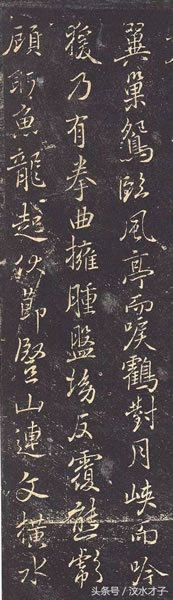 翼巢鴛臨風亭而唳鶴對月峽而吟
猨乃有拳曲擁腫盤坳反覆熊彪
顧盼魚龍起伏節豎山連文橫水
头条号／汶水才子